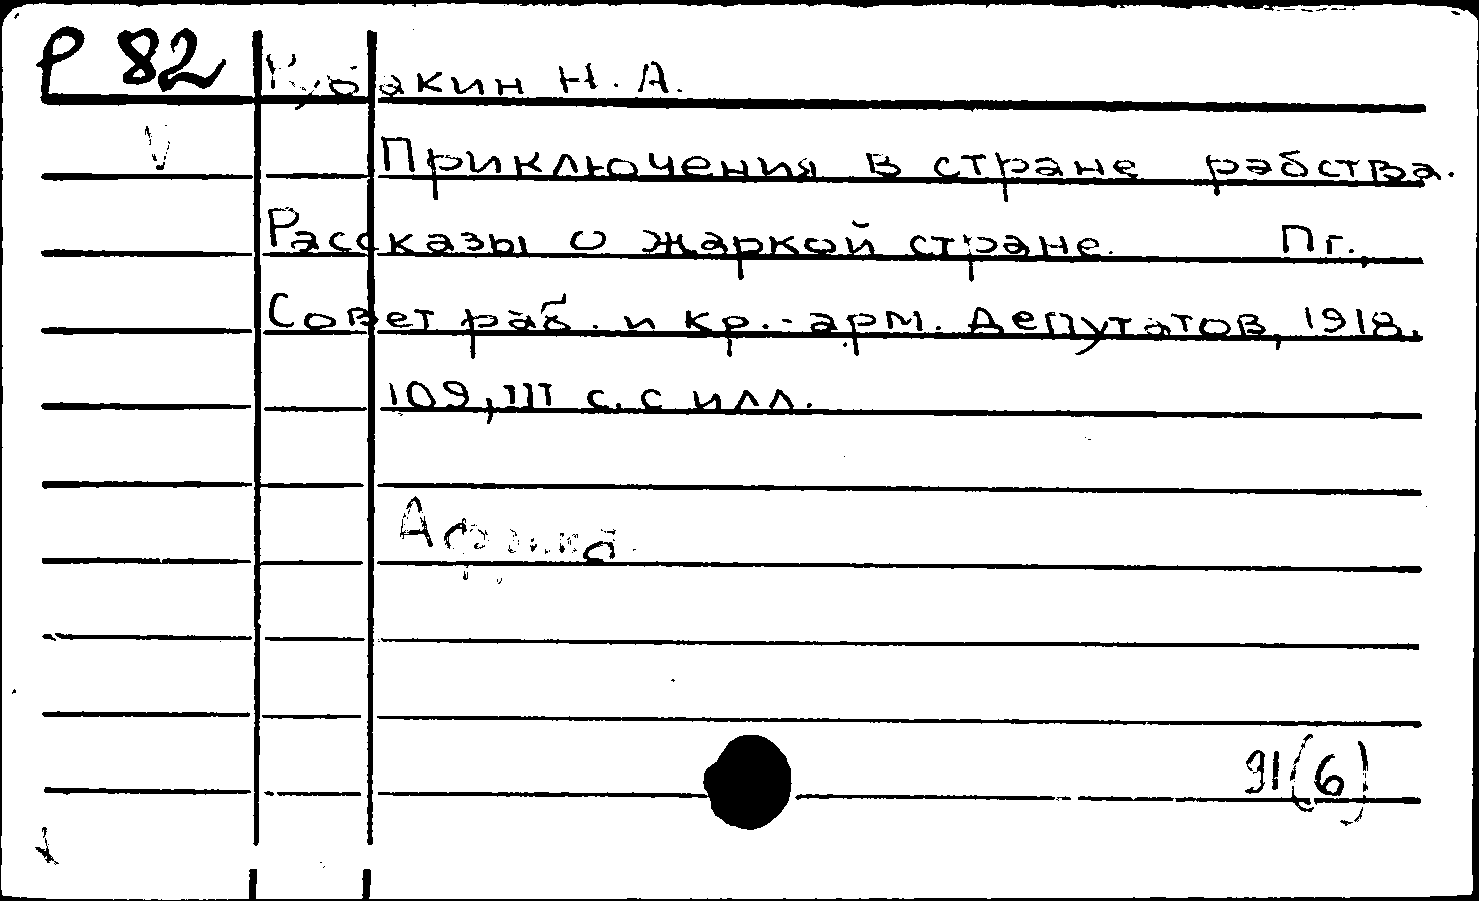 Р 82
Рубакин Н. А.
Приключения в стране рабства.
Рассказы о жаркой стране. Пг.,
Совет раб. и кр.-арм. Депутатов, 1918.
109, III с. с илл.
Африка.
91(6)